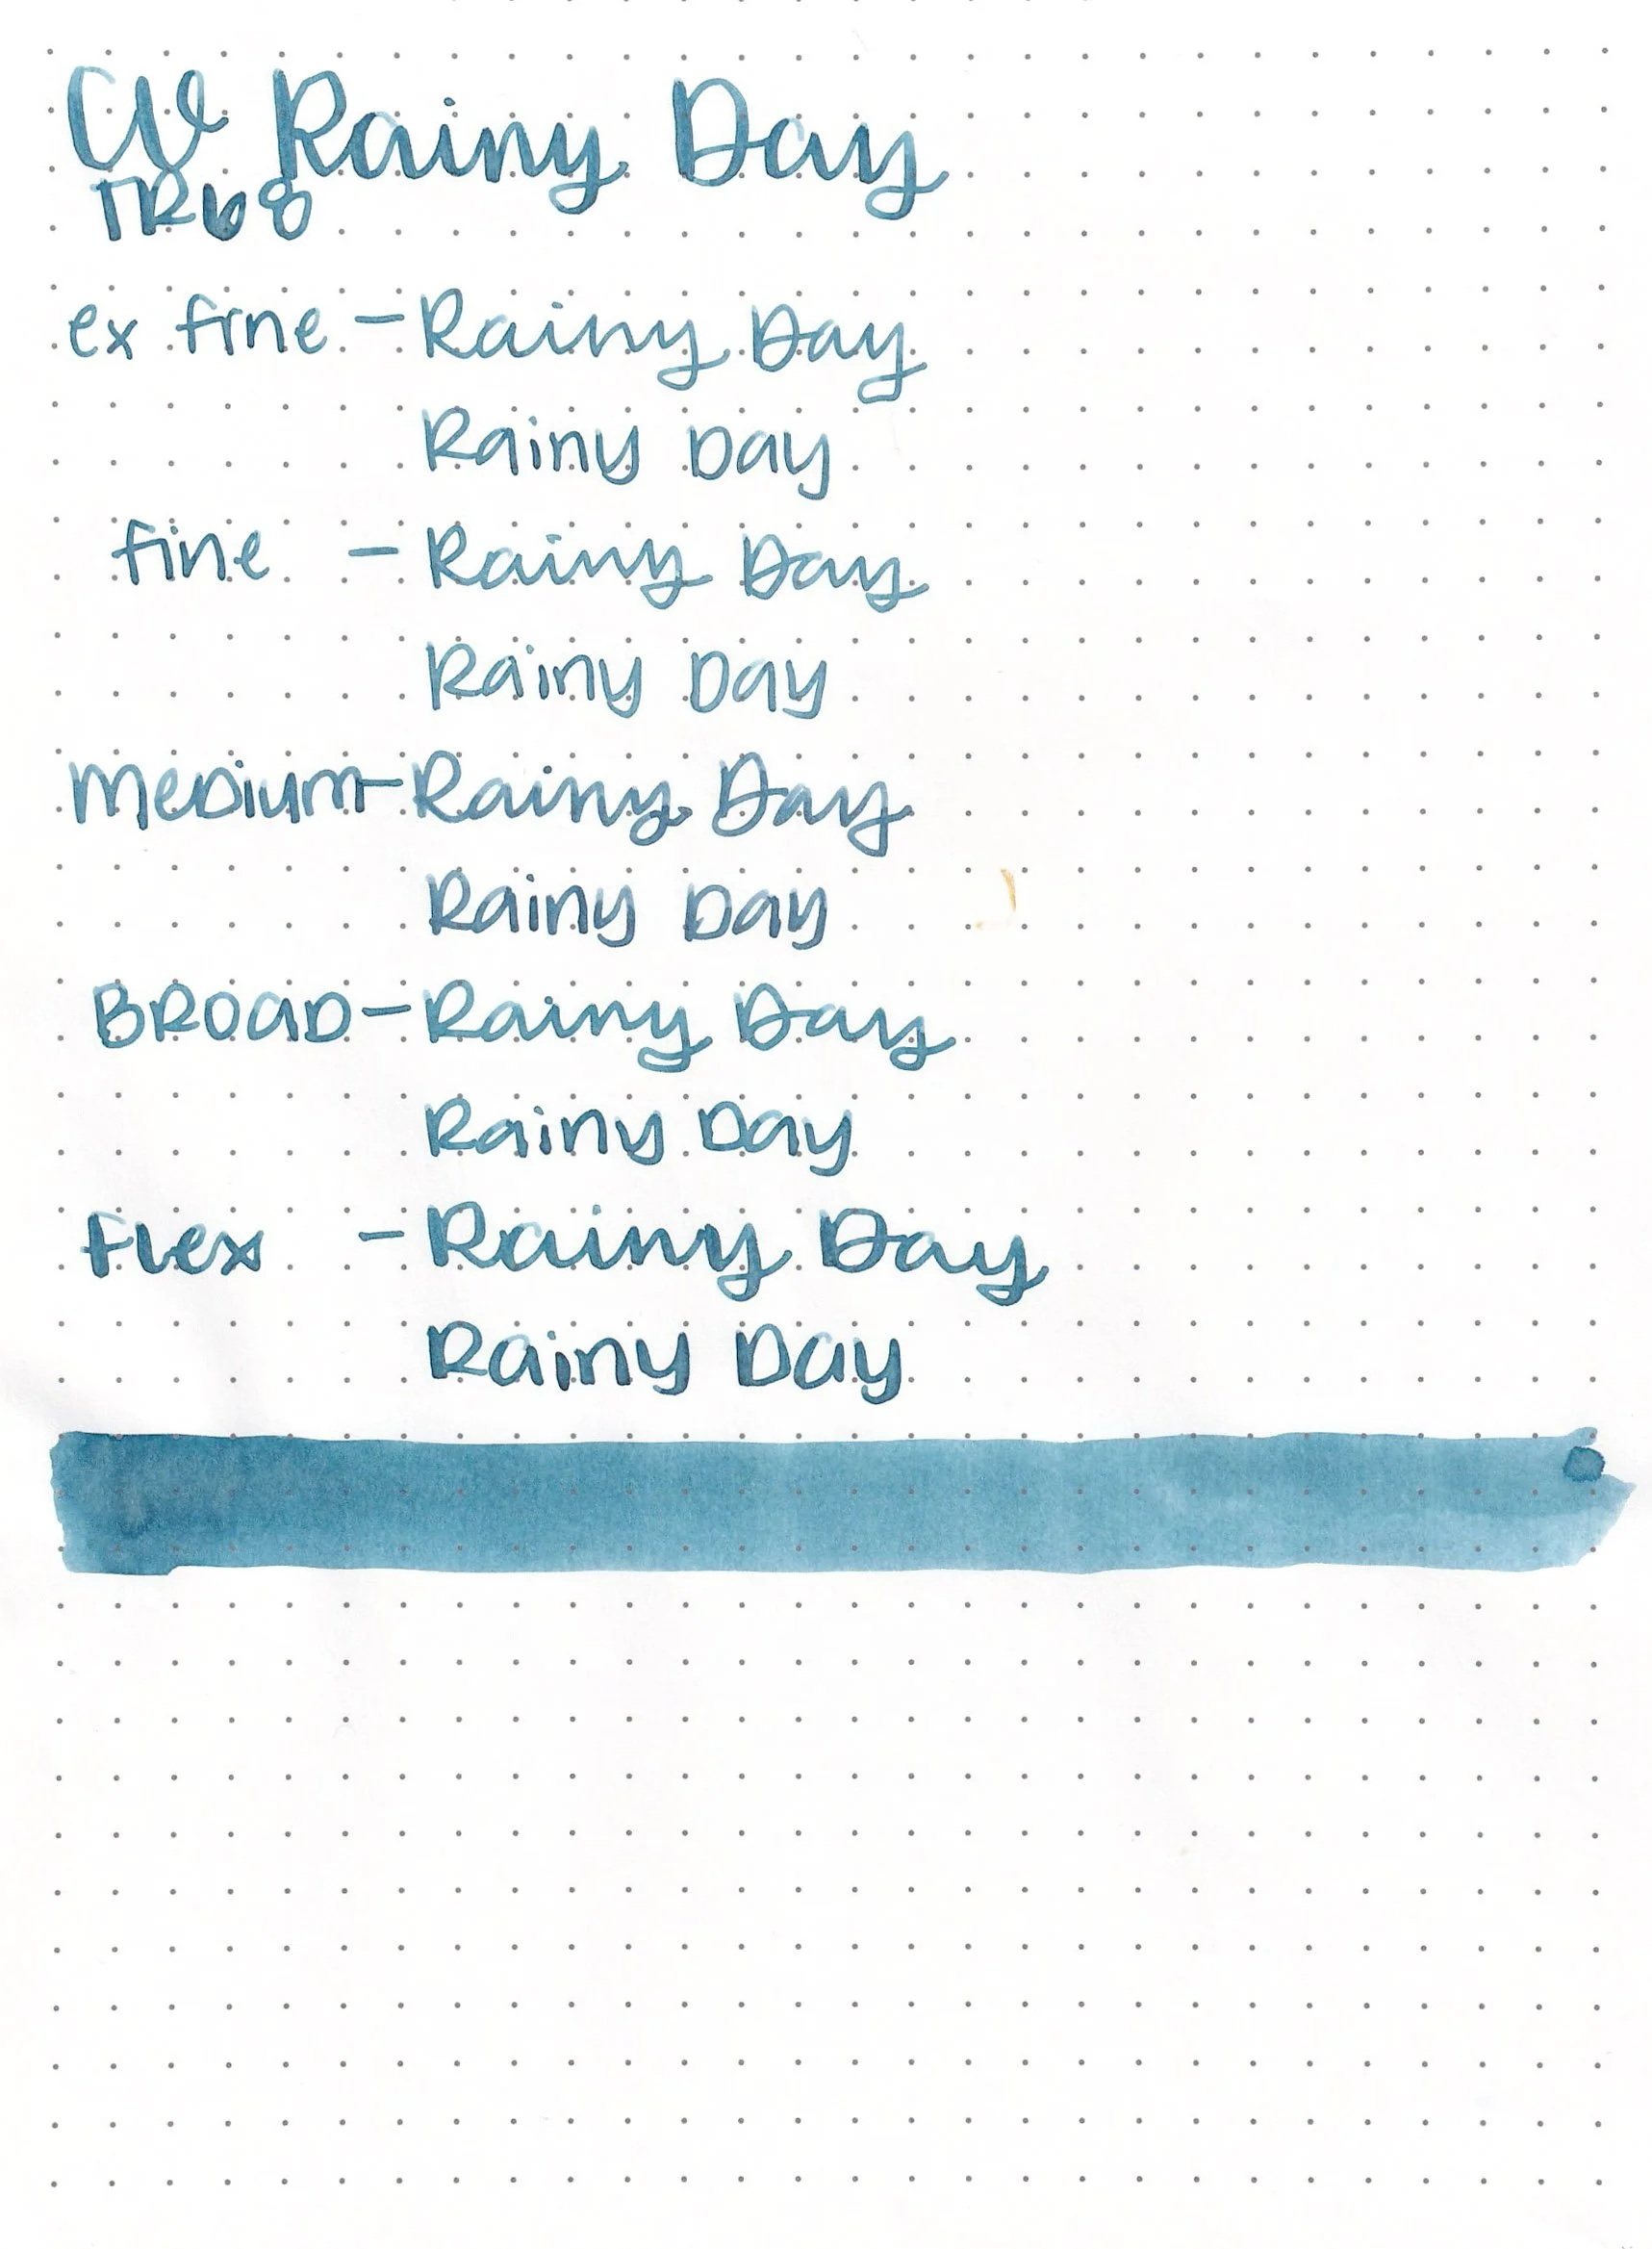 CW Rainy Day
TR68
ex fine - Rainy Day
Rainy Day
fine - Rainy Day
Rainy Day
Medium - Rainy Day
Rainy Day
BROAD - Rainy Day
Rainy Day
Flex - Rainy Day
Rainy Day